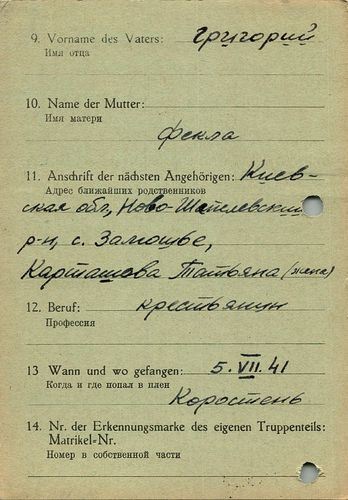 9. Vorname des Vaters: Григорий
Имя отца
10. Name der Mutter:
Имя матери
Фекла
11. Anschrift der nächsten Angehörigen: Киев-
Адрес ближайших родственников
ская обл, Ново-Шепелевский
р-н, с. Замощье,
Карташова Татьяна (жена)
12. Beruf: крестьянин
Профессия
13 Wann und wo gefangen: 5. VII. 41
Когда и где попал в плен
Коростень
14. Nr. der Erkennungsmarke des eigenen Truppenteils:
Matrikel-Nr.
Номер в собственной части